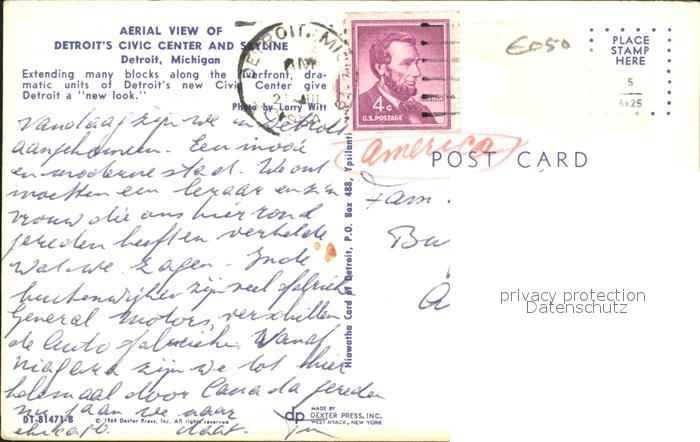 AERIAL VIEW OF
DETROIT'S CIVIC CENTER AND SKYLINE
Detroit, Michigan
Extending many blocks along the riverfront, dra-
matic units of Detroit's new Civic Center give
Detroit a "new look."
Photo by Larry Witt
Vandaag zijn we in Detroit
aangekomen. Een mooie
en moderne stad. We ont
moetten een leraar en z'n
vrouw die ons hier rond
gereden heeft en vertelde
wat we zagen - In de
buitenwijken zijn veel fabrieken
General Motors, verschillen
de Auto fabrieken. Vanaf
Niagara zijn we tot hier
helemaal door Canada gereden
nu gaan we naar
chicago.
DT-81471-B
© 1964 Dexter Press, Inc.
Hiawatha Card of Detroit, P.O. Box 488, Ypsilanti
dp
MADE BY
DEXTER PRESS, INC.
WEST NYACK, NEW YORK
DETROIT, MI
4¢
U.S. POSTAGE
E050
PLACE
STAMP
HERE
5
4x25
america
POST CARD
Fam
privacy protection
Datenschutz